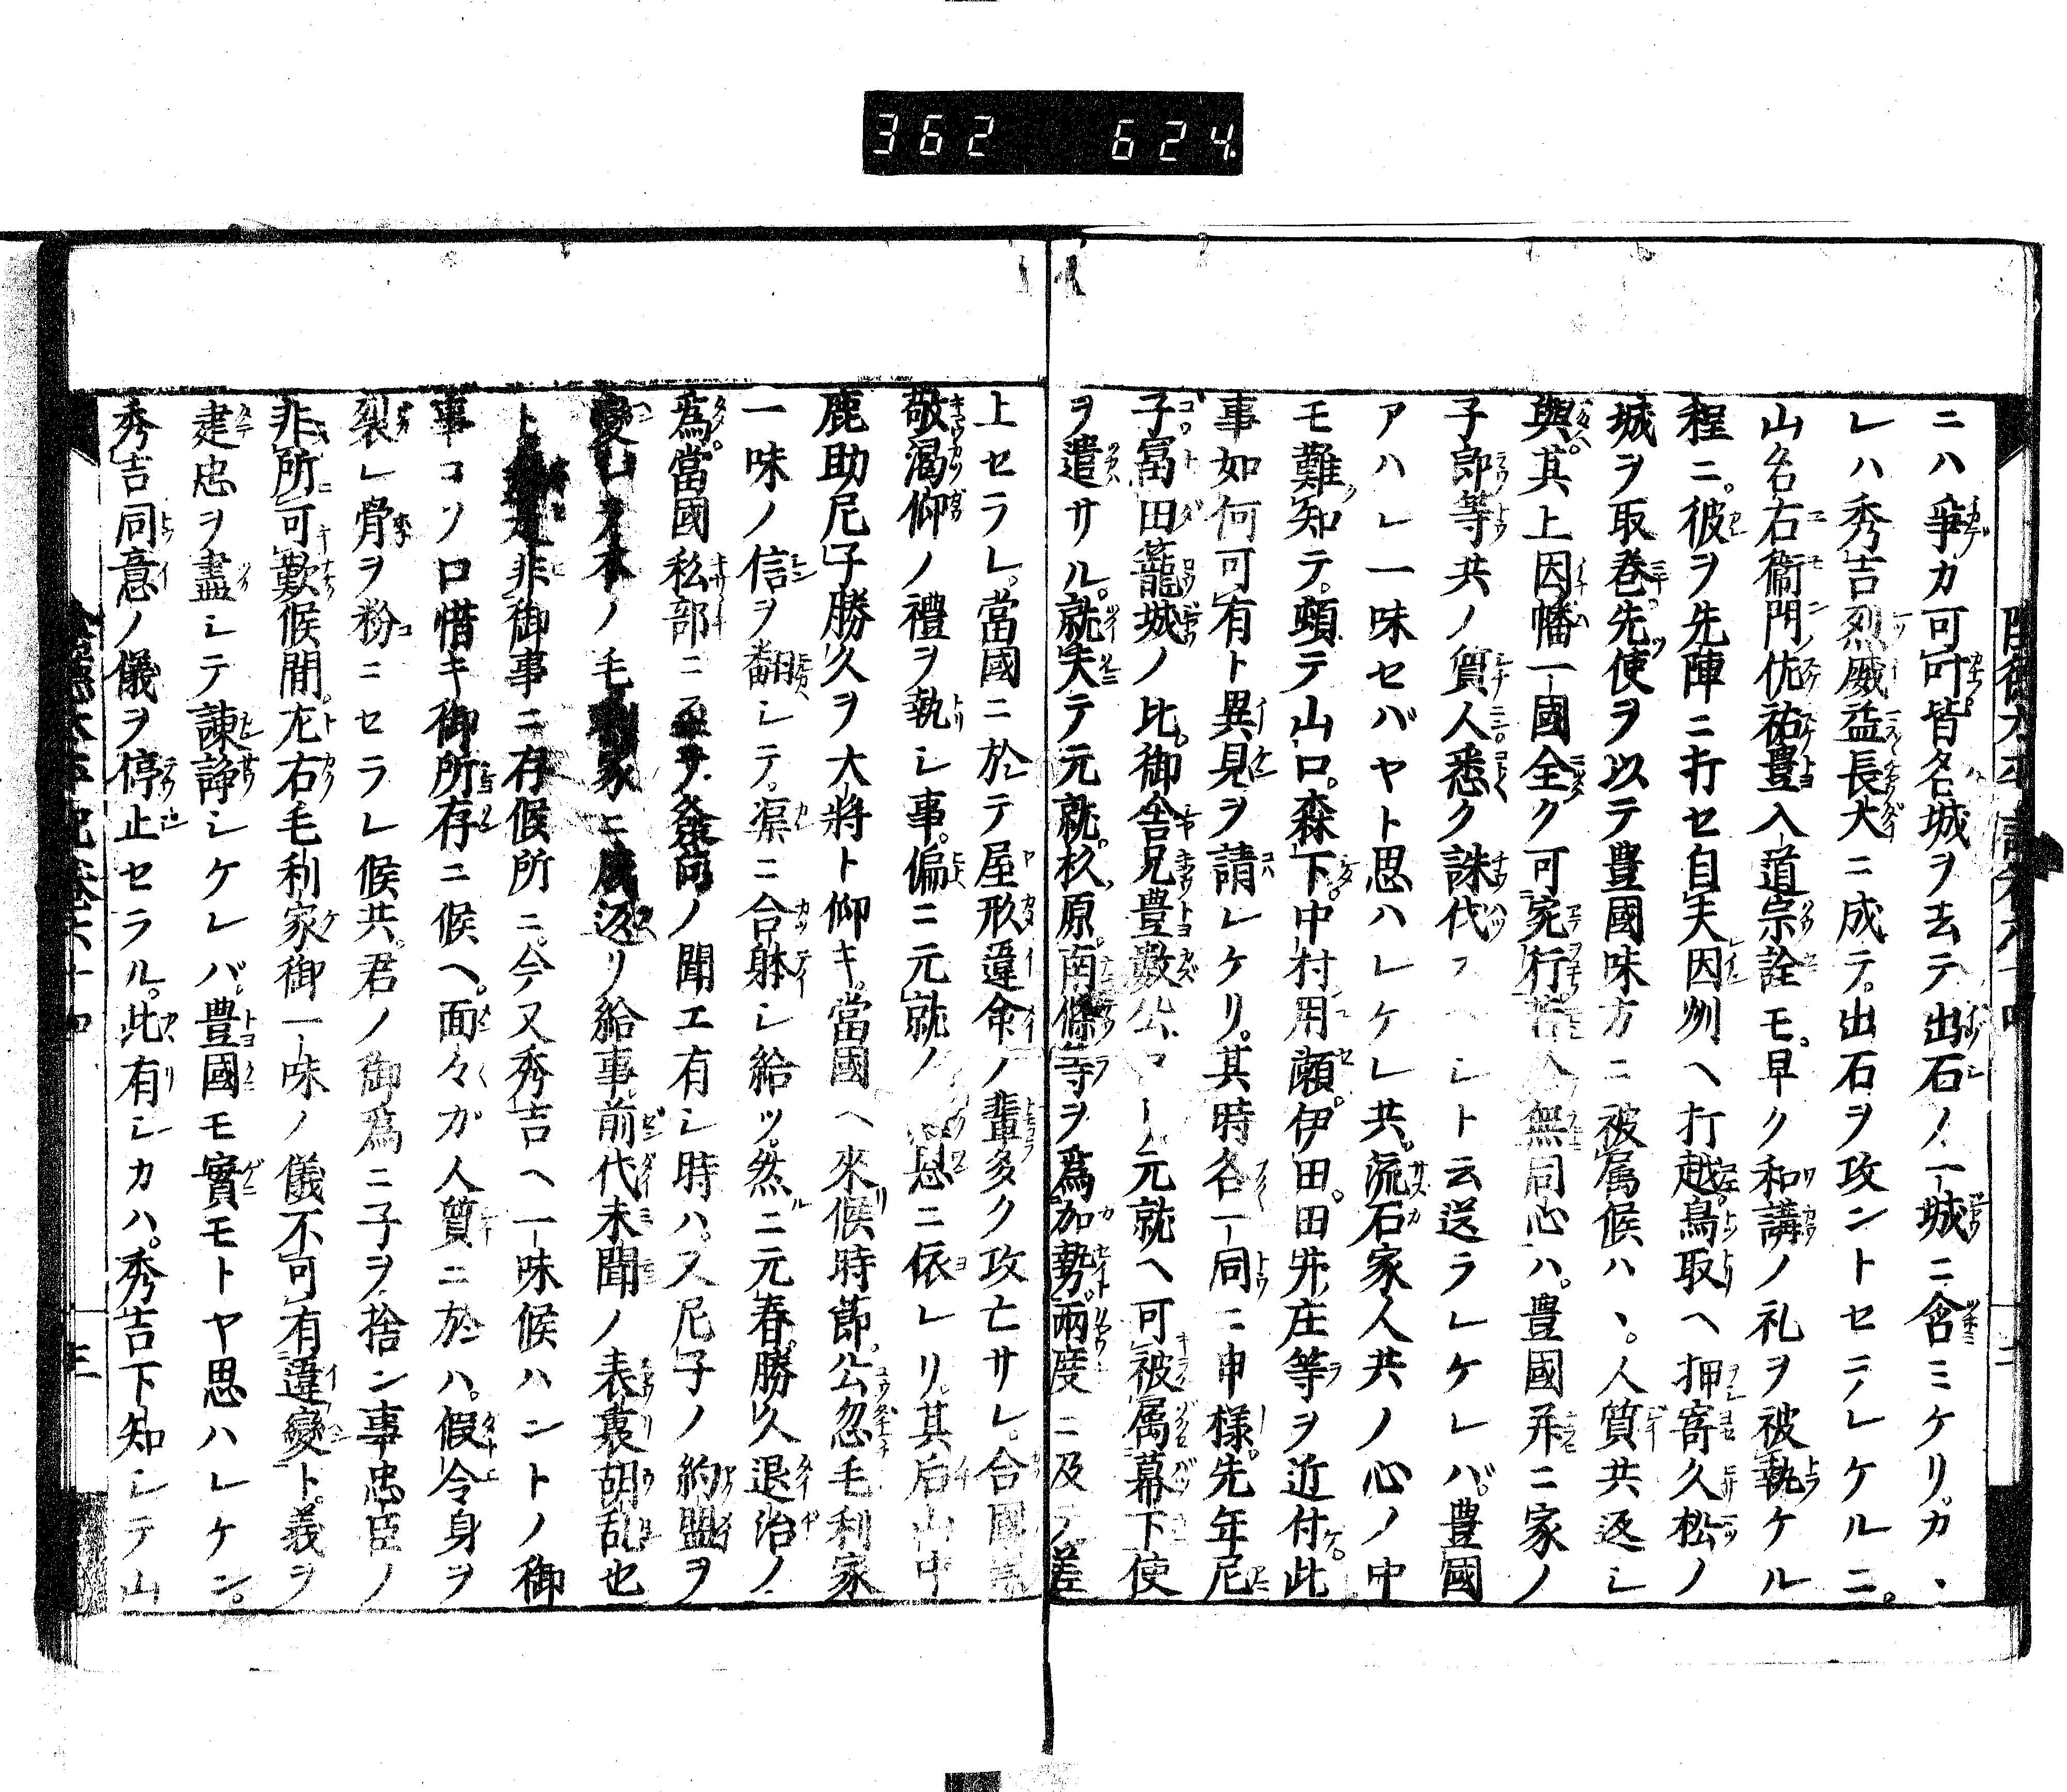 362 624
ニハ爭カ可叶皆名城ヲ去テ出石ノ一城ニ含ミケリ。カヽ
レハ秀吉烈威益長大ニ成テ。出石ヲ攻ントセラレケルニ。
山名右衞門佐祐豊入道宗詮モ。早ク和講ノ礼ヲ被執ケル
程ニ。彼ヲ先陣ニ打セ自夫因州ヘ打越。鳥取ヘ押寄久松ノ
城ヲ取巻先使ヲ以テ豊國味方ニ被属候ハヽ。人質共返シ
與。其上因幡一國全ク可宛行若又無同心ハ。豊國并ニ家ノ
子郎等共ノ質人悉ク誅伐スヘシト云送ラレケレバ。豊國
アハレ一味セバヤト思ハレケレ共。流石家人共ノ心ノ中
モ難知テ。頓テ山口。森下。中村用瀬。伊田。田井庄等ヲ近付。此
事如何可有ト異見ヲ請レケリ。其時各一同ニ申様。先年尼
子冨田籠城ノ比。御舎兄豊數公ヨリ元就ヘ可被属幕下使
ヲ遣サル。就夫テ元就。杉原。南條等ヲ爲加勢。兩度ニ及テ差
上セラレ。當國ニ於テ屋形違命ノ輩多ク攻亡サレ。合國
敬渇仰ノ禮ヲ執シ事。偏ニ元就ノ恩ニ依レリ。其后山中
鹿助尼子勝久ヲ大將ト仰キ。當國ヘ來候時節。公忽毛利家
一味ノ信ヲ翻シテ。渠ニ合躰シ給ッ。然ニ元春。勝久退治ノ
爲。當國私部ニ至リ發向ノ聞エ有シ時ハ。又尼子ノ約盟ヲ
變シ又本ノ毛利家ニ属返リ給事。前代未聞ノ表裏胡乱也
ト是非御事ニ存候所ニ。今又秀吉ヘ一味候ハントノ御
事コソ口惜キ御所存ニ候ヘ。面々ガ人質ニ於ハ。假令身ヲ
裂レ骨ヲ粉ニセラレ候共。君ノ御爲ニ子ヲ捨ン事忠臣ノ
非所可歎候間。左右毛利家御一味ノ儀不可有違變ト。義ヲ
建忠ヲ盡シテ諫諍シケレバ。豊國モ實モトヤ思ハレケン。
秀吉同意ノ儀ヲ停止セラル。此有シカハ。秀吉下知シテ山
三